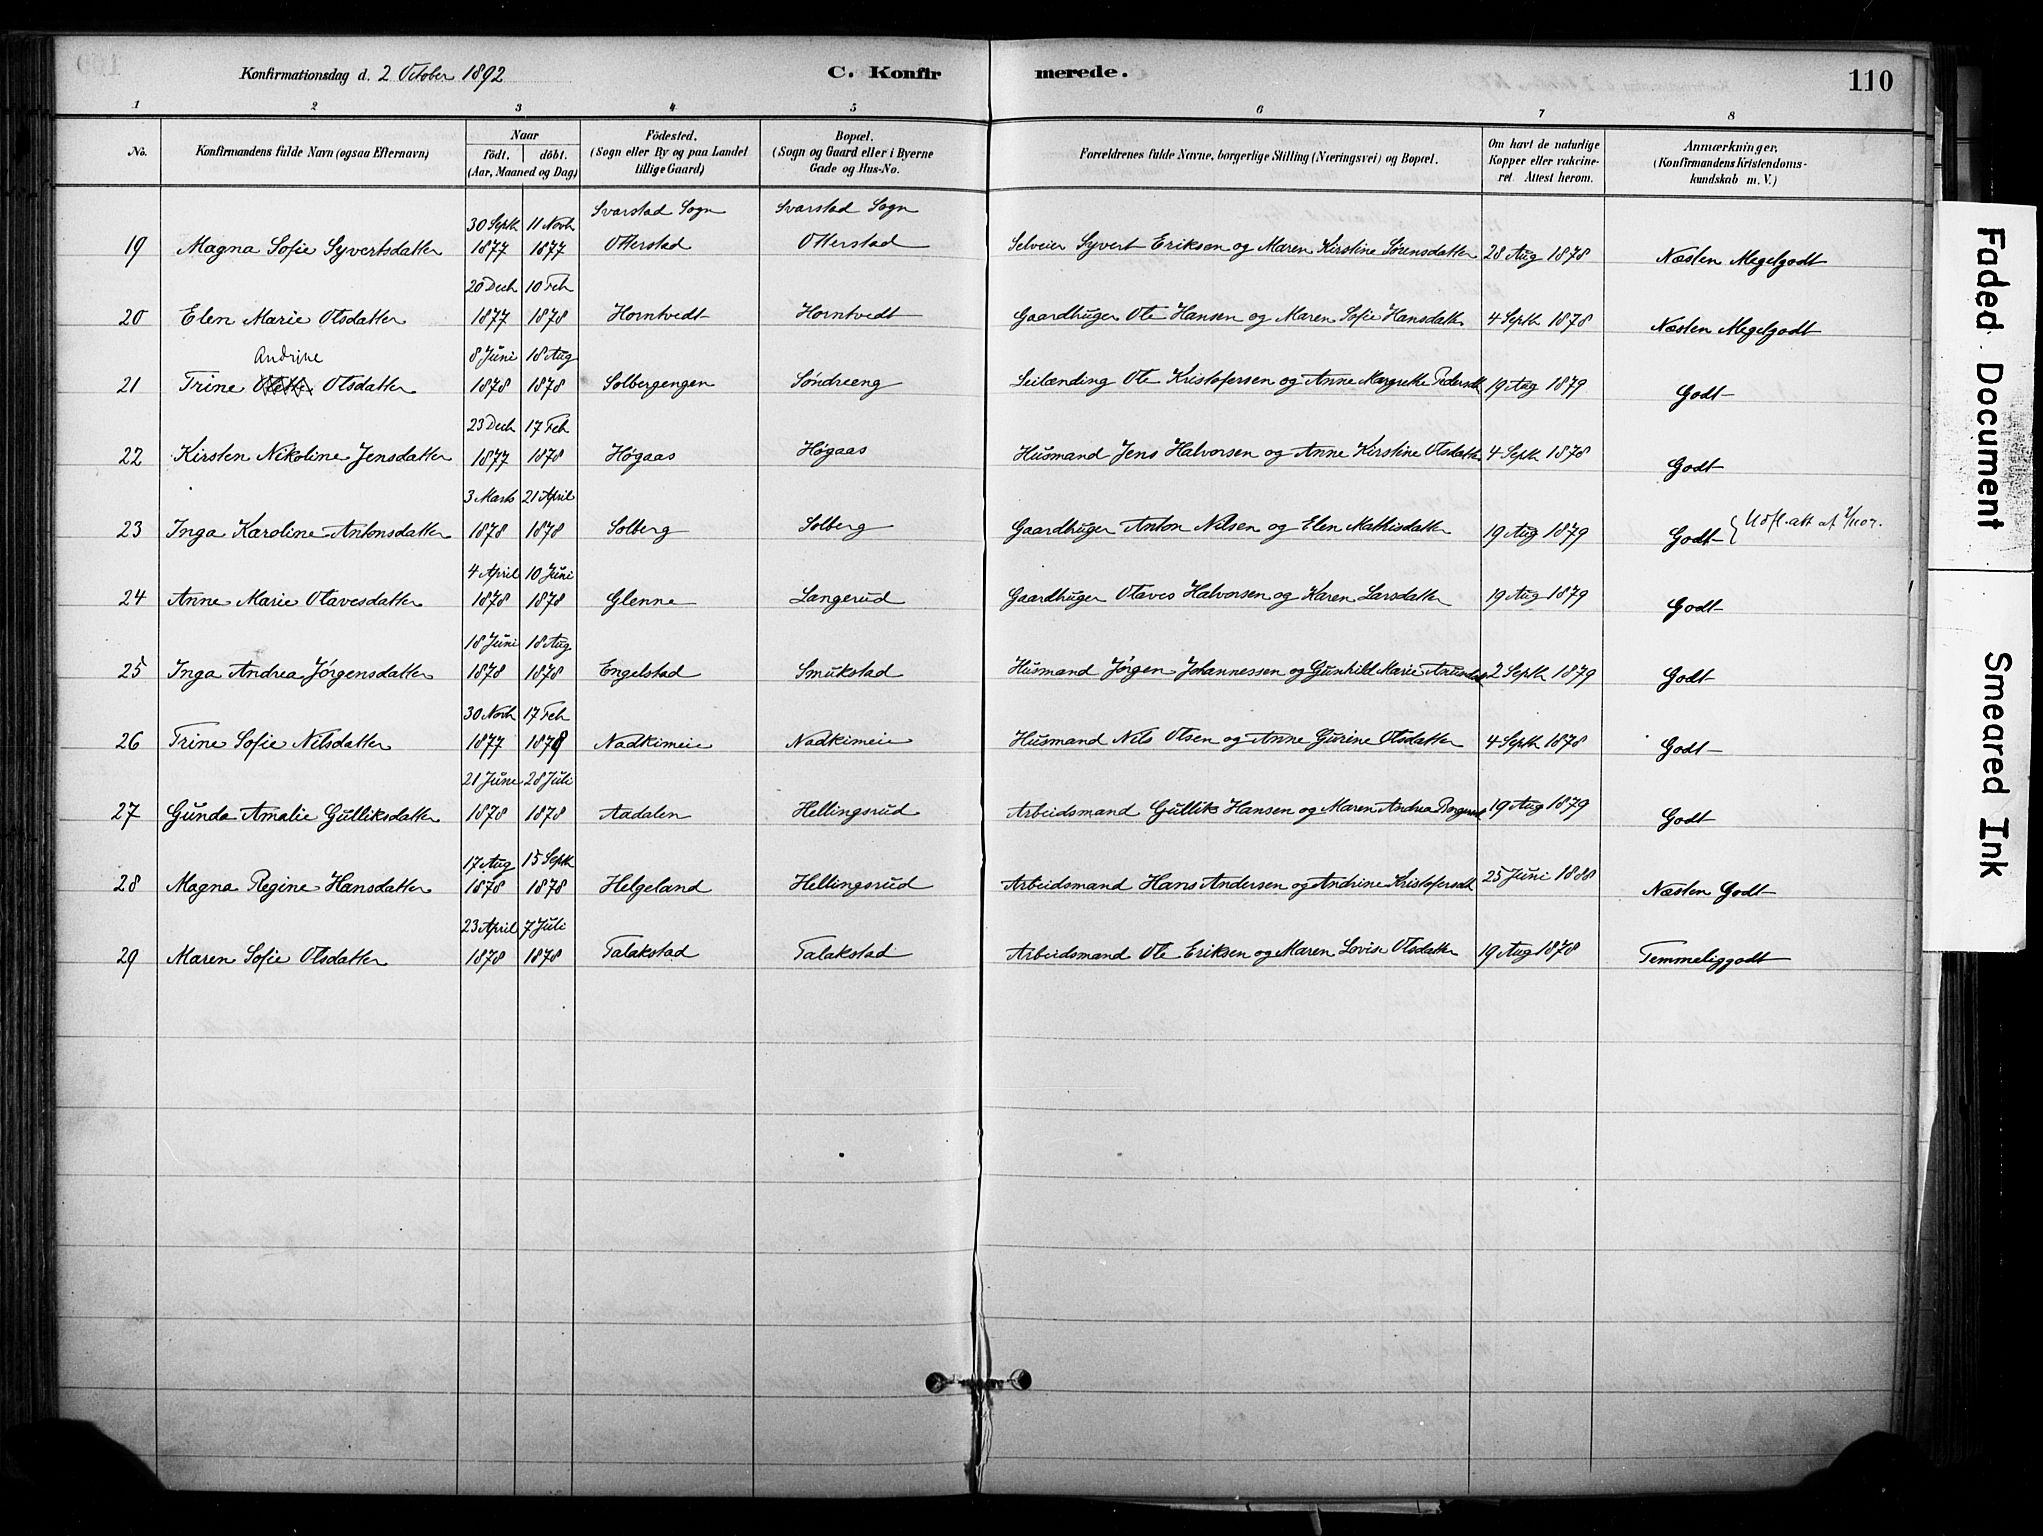 Konfirmationsdag d. 2 October 1892 C. Konfirmerede. 110
1 2 3 4 5 6 7 8
No. Konfirmandens fulde Navn (ogsaa Efternavn) Naar født. døbt. (Aar, Maaned og Dag) Fødested. (Sogn eller By og paa Landet tillige Gaard) Bopæl. (Sogn og Gaard eller i Byerne Gade og Hus-No. Forældrenes fulde Navne, borgerlige Stilling (Næringsvei) og Bopæl. Om havt de naturlige Kopper eller vakcineret. Attest herom. Anmærkninger, (Konfirmandens Kristendomskundskab m. V.)
30 Septb 11 Novb Svarstad Sogn Svarstad Sogn
19 Magna Sofie Syvertsdatter 1877 1877 Otterstad Otterstad Selveier Syvert Eriksen og Maren Kirstine Sørensdatter 28 Aug 1878 Næsten Megetgodt
20 Decb 10 Feb
20 Elen Marie Olsdatter 1877 1878 Horntvedt Horntvedt Gaardbruger Ole Hansen og Maren Sofie Hansdatter 4 Septb 1878 Næsten Megetgodt
Andrine 8 Juni 18 Aug
21 Trine Olsdatter 1878 1878 Solbergengen Søndreeng Leilænding Ole Kristofersen og Anne Margrethe Pedersdt 19 Aug 1879 Godt
23 Decb 17 Feb
22 Kirsten Nikoline Jensdatter 1877 1878 Høgaas Høgaas Husmand Jens Halvorsen og Anne Kirstine Olsdatter 4 Septb 1878 Godt
3 Marts 21 April
23 Inga Karoline Antonsdatter 1878 1878 Solberg Solberg Gaardbruger Anton Nilsen og Elen Mathisdatter 19 Aug 1879 Godt { Udst. att. af
4 April 10 Juni
24 Anne Marie Olavesdatter 1878 1878 Glenne Langerud Gaardbruger Olaves Halvorsen og Karen Larsdatter 19 Aug 1879 Godt
18 Juni 18 Aug
25 Inga Andrea Jörgensdatter 1878 1878 Engelstad Smukstad Husmand Jörgen Johannessen og Gunhild Marie 2 Septb 1879 Godt
30 Novb 17 Feb
26 Trine Sofie Nilsdatter 1877 1878 Nadkimeie Nadkimeie Husmand Nils Olsen og Anne Gurine Olsdatter 4 Septb 1878 Godt
21 June 28 Juli
27 Gunda Amalie Gulliksdatter 1878 1878 Aadalen Hellingsrud Arbeidsmand Gullik Hansen og Maren Andrea 19 Aug 1879 Godt
17 Aug 15 Septb
28 Magna Regine Hansdatter 1878 1878 Helgeland Hellingsrud Arbeidsmand Hans Andersen og Andrine Kristofersdt 25 Juni 1888 Næsten Godt
23 April 7 Juli
29 Maren Sofie Olsdatter 1878 1878 Talakstad Talakstad Arbeidsmand Ole Eriksen og Maren Lovise Olsdatter 19 Aug 1878 Temmeliggodt
Faded Document
Smeared Ink